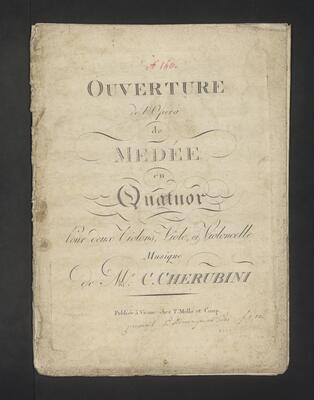 OUVERTURE
de l'Opera
de
MEDÉE
en
Quatuor
Pour deux Violons, Viole, et Violoncelle
Musique
De Mr. C. CHERUBINI
Publiée à Vienne chez T. Mollo et Comp.